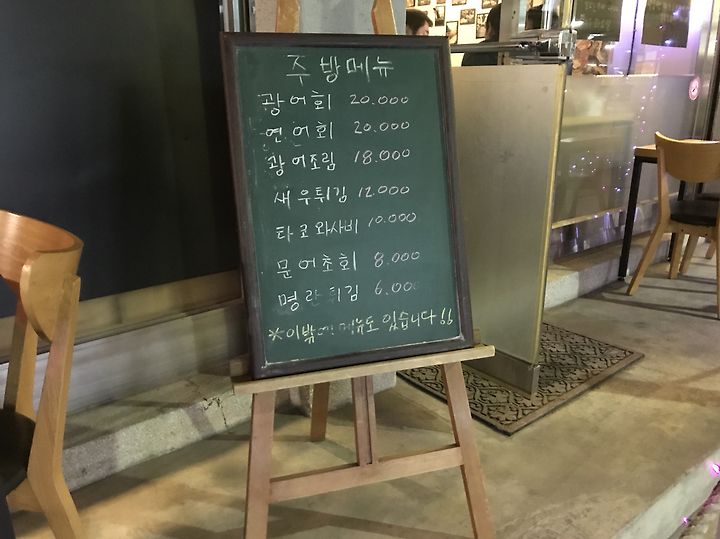 주방메뉴
광어회 20.000
연어회 20.000
광어조림 18.000
새우튀김 12.000
타코와사비 10.000
문어초회 8.000
명란튀김 6.000
※이밖에 메뉴도 있습니다!!